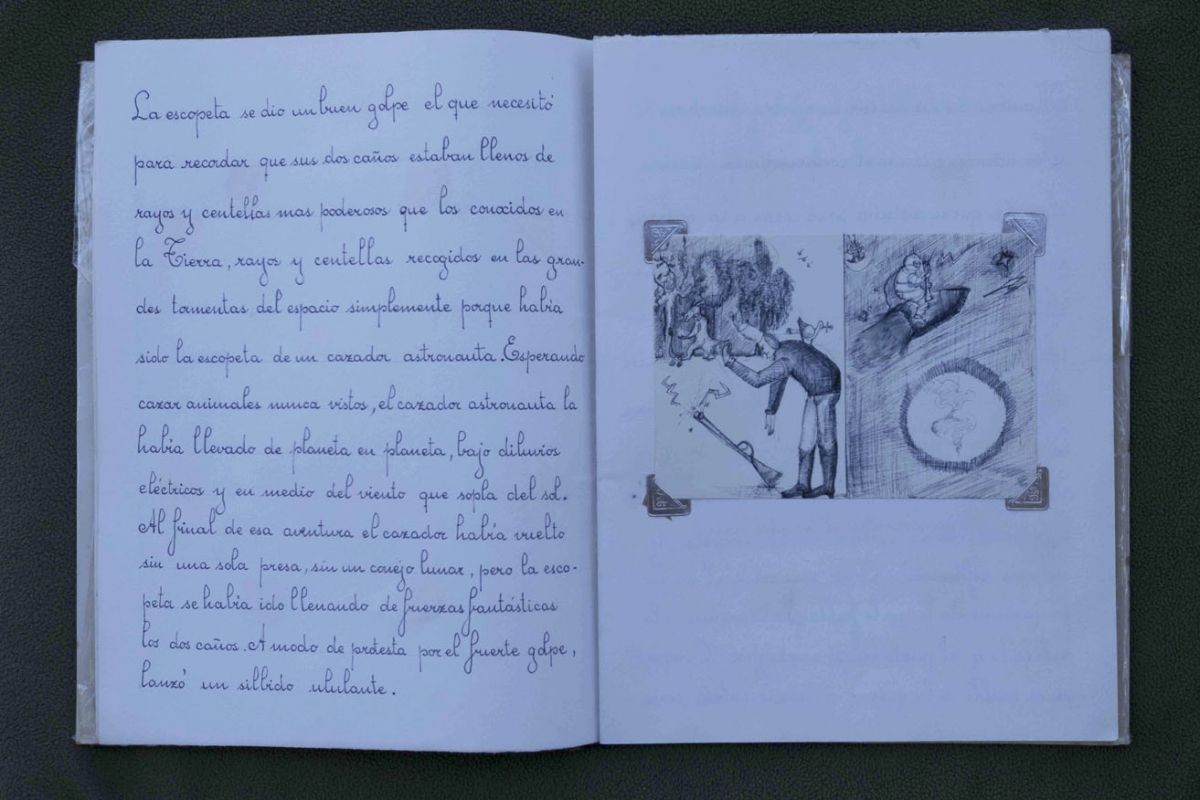 La escopeta se dio un buen golpe el que necesitó
para recordar que sus dos caños estaban llenos de
rayos y centellas mas poderosos que los conocidos en
la Tierra, rayos y centellas recogidos en las gran-
des tormentas del espacio simplemente porque había
sido la escopeta de un cazador astronauta. Esperando
cazar animales nunca vistos, el cazador astronauta la
había llevado de planeta en planeta, bajo diluvios
eléctricos y en medio del viento que sopla del sol.
Al final de esa aventura el cazador había vuelto
sin una sola presa, sin un conejo lunar, pero la esco-
peta se había ido llenando de fuerzas fantásticas
los dos caños. A modo de protesta por el fuerte golpe,
lanzó un silbido ululante.